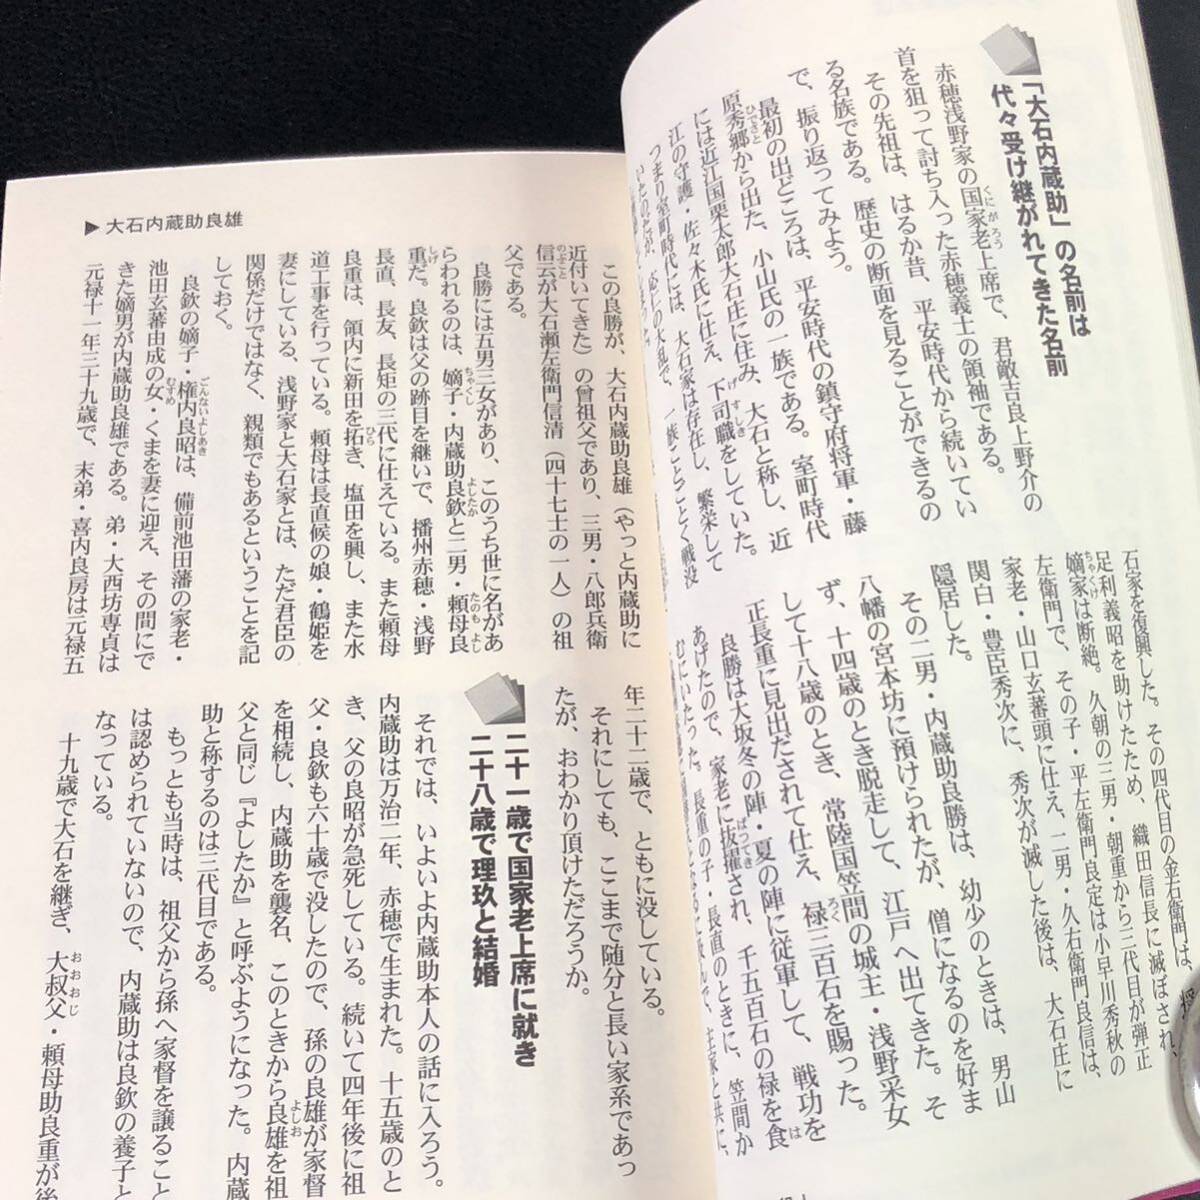 「大石内蔵助」の名前は
代々受け継がれてきた名前
赤穂浅野家の国家老上席で、君敵吉良上野介の
首を狙って討ち入った赤穂義士の領袖である。
その先祖は、はるか昔、平安時代から続いてい
る名族である。歴史の断面を見ることができるの
で、振り返ってみよう。
最初の出どころは、平安時代の鎮守府将軍・藤
原秀郷から出た、小山氏の一族である。室町時代
には近江国栗太郎大石庄に住み、大石と称し、近
江の守護・佐々木氏に仕え、下司職をしていた。
つまり室町時代には、大石家は存在し、繁栄して
いたのだが、応仁の大乱で、一族ことごとく戦没
石家を復興した。その四代目の金右衛門は、
足利義昭を助けたため、織田信長に滅ぼされ、
嫡家は断絶。久朝の三男・朝重から三代目が弾正
左衛門で、その子・平左衛門良定は小早川秀秋の
家老・山口玄蕃頭に仕え、二男・久右衛門良信は、
関白・豊臣秀次に、秀次が滅した後は、大石庄に
隠居した。
その二男・内蔵助良勝は、幼少のときは、男山
八幡の宮本坊に預けられたが、僧になるのを好ま
ず、十四歳のとき脱走して、江戸へ出てきた。そ
して十八歳のとき、常陸国笠間の城主・浅野采女
正長重に見出だされて仕え、禄三百石を賜った。
良勝は大坂冬の陣・夏の陣に従軍して、戦功を
あげたので、家老に抜擢され、千五百石の禄を食
むにいたった。長重の子・長直のときに、笠間か
▶大石内蔵助良雄
この良勝が、大石内蔵助良雄（やっと内蔵助に
近付いてきた）の曾祖父であり、三男・八郎兵衛
信云が大石瀬左衛門信清（四十七士の一人）の祖
父である。
良勝には五男三女があり、このうち世に名があ
らわれるのは、嫡子・内蔵助良欽と二男・頼母良
重だ。良欽は父の跡目を継いで、播州赤穂・浅野
長直、長友、長矩の三代に仕えている。また頼母
良重は、領内に新田を拓き、塩田を興し、また水
道工事を行っている。頼母は長直候の娘・鶴姫を
妻にしている、浅野家と大石家とは、ただ君臣の
関係だけではなく、親類でもあるということを記
しておく。
良欽の嫡子・権内良昭は、備前池田藩の家老・
池田玄蕃由成の女・くまを妻に迎え、その間にで
きた嫡男が内蔵助良雄である。弟・大西坊専貞は
元禄十一年三十九歳で、末弟・喜内良房は元禄五
年二十二歳で、ともに没している。
それにしても、ここまで随分と長い家系であっ
たが、おわかり頂けただろうか。
二十一歳で国家老上席に就き
二十八歳で理玖と結婚
それでは、いよいよ内蔵助本人の話に入ろう。
内蔵助は万治二年、赤穂で生まれた。十五歳のと
き、父の良昭が急死している。続いて四年後に祖
父・良欽も六十歳で没したので、孫の良雄が家督
を相続し、内蔵助を襲名、このときから良雄を祖
父と同じ『よしたか』と呼ぶようになった。内蔵
助と称するのは三代目である。
もっとも当時は、祖父から孫へ家督を譲ること
は認められていないので、内蔵助は良欽の養子と
なっている。
十九歳で大石を継ぎ、大叔父・頼母助良重が後